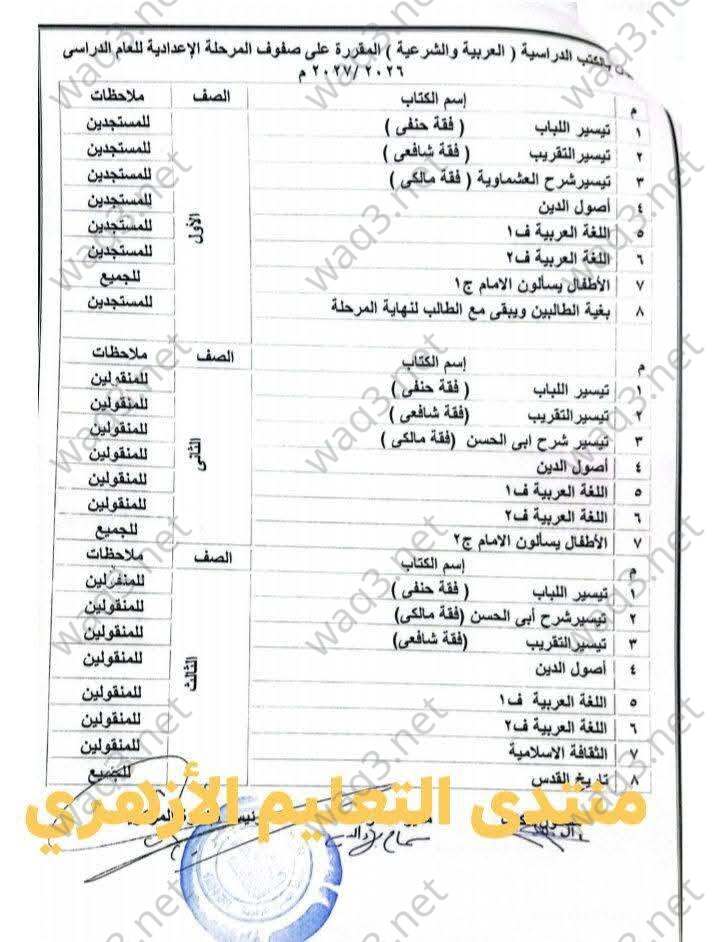 بالكتب الدراسية ( العربية والشرعية ) المقررة على صفوف المرحلة الإعدادية للعام الدراسى
٢٠٢٦/ ٢٠٢٧ م
م إسم الكتاب الصف ملاحظات
١ تيسير اللباب ( فقة حنفى ) للمستجدين
٢ تيسيرالتقريب ( فقة شافعى ) للمستجدين
٣ تيسيرشرح العشماوية ( فقة مالكى ) للمستجدين
٤ أصول الدين للمستجدين
الأول
٥ اللغة العربية ف١ للمستجدين
٦ اللغة العربية ف٢ للمستجدين
٧ الأطفال يسألون الامام ج١ للجميع
٨ بغية الطالبين ويبقى مع الطالب لنهاية المرحلة للمستجدين
م إسم الكتاب الصف ملاحظات
١ تيسير اللباب ( فقة حنفى ) للمنقولين
٢ تيسيرالتقريب (فقة شافعى ) للمنقولين
٣ تيسير شرح ابى الحسن (فقة مالكى ) للمنقولين
الثانى
٤ أصول الدين للمنقولين
٥ اللغة العربية ف١ للمنقولين
٦ اللغة العربية ف٢ للمنقولين
٧ الأطفال يسألون الامام ج٢ للجميع
م إسم الكتاب الصف ملاحظات
١ تيسير اللباب ( فقة حنفى ) للمنقولين
٢ تيسيرشرح أبى الحسن (فقة مالكى) للمنقولين
٣ تيسيرالتقريب (فقة شافعى) للمنقولين
٤ أصول الدين للمنقولين
الثالث
٥ اللغة العربية ف١ للمنقولين
٦ اللغة العربية ف٢ للمنقولين
٧ الثقافة الاسلامية للمنقولين
٨ تاريخ القدس للجميع
منتدى التعليم الأزهري
waq3.net